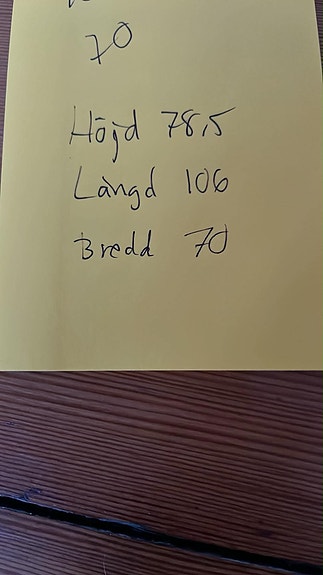 70
Höjd 78,5
Längd 106
Bredd 70